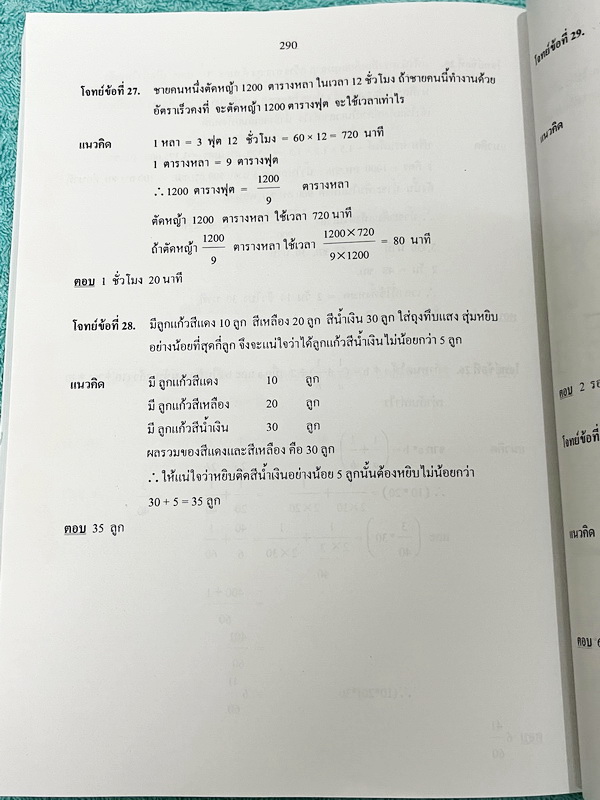 290
โจทย์ข้อที่ 27. ชายคนหนึ่งตัดหญ้า 1200 ตารางหลา ในเวลา 12 ชั่วโมง ถ้าชายคนนี้ทำงานด้วย
อัตราเร็วคงที่ จะตัดหญ้า 1200 ตารางฟุต จะใช้เวลาเท่าไร
แนวคิด 1 หลา = 3 ฟุต 12 ชั่วโมง = 60 × 12 = 720 นาที
1 ตารางหลา = 9 ตารางฟุต
∴ 1200 ตารางฟุต = 1200/9 ตารางหลา
ตัดหญ้า 1200 ตารางหลา ใช้เวลา 720 นาที
ถ้าตัดหญ้า 1200/9 ตารางหลา ใช้เวลา 1200×720/9×1200 = 80 นาที
ตอบ 1 ชั่วโมง 20 นาที
โจทย์ข้อที่ 28. มีลูกแก้วสีแดง 10 ลูก สีเหลือง 20 ลูก สีน้ำเงิน 30 ลูก ใส่ถุงทึบแสง สุ่มหยิบ
อย่างน้อยที่สุดกี่ลูก จึงจะแน่ใจว่าได้ลูกแก้วสีน้ำเงินไม่น้อยกว่า 5 ลูก
แนวคิด มี ลูกแก้วสีแดง 10 ลูก
มี ลูกแก้วสีเหลือง 20 ลูก
มี ลูกแก้วสีน้ำเงิน 30 ลูก
ผลรวมของสีแดงและสีเหลือง คือ 30 ลูก
∴ ให้แน่ใจว่าหยิบติดสีน้ำเงินอย่างน้อย 5 ลูกนั้นต้องหยิบไม่น้อยกว่า
30 + 5 = 35 ลูก
ตอบ 35 ลูก
โจทย์ข้อที่ 29.
แนวคิด
ตอบ 2
โจทย์ข้อที่
แนวคิด
ตอบ 6